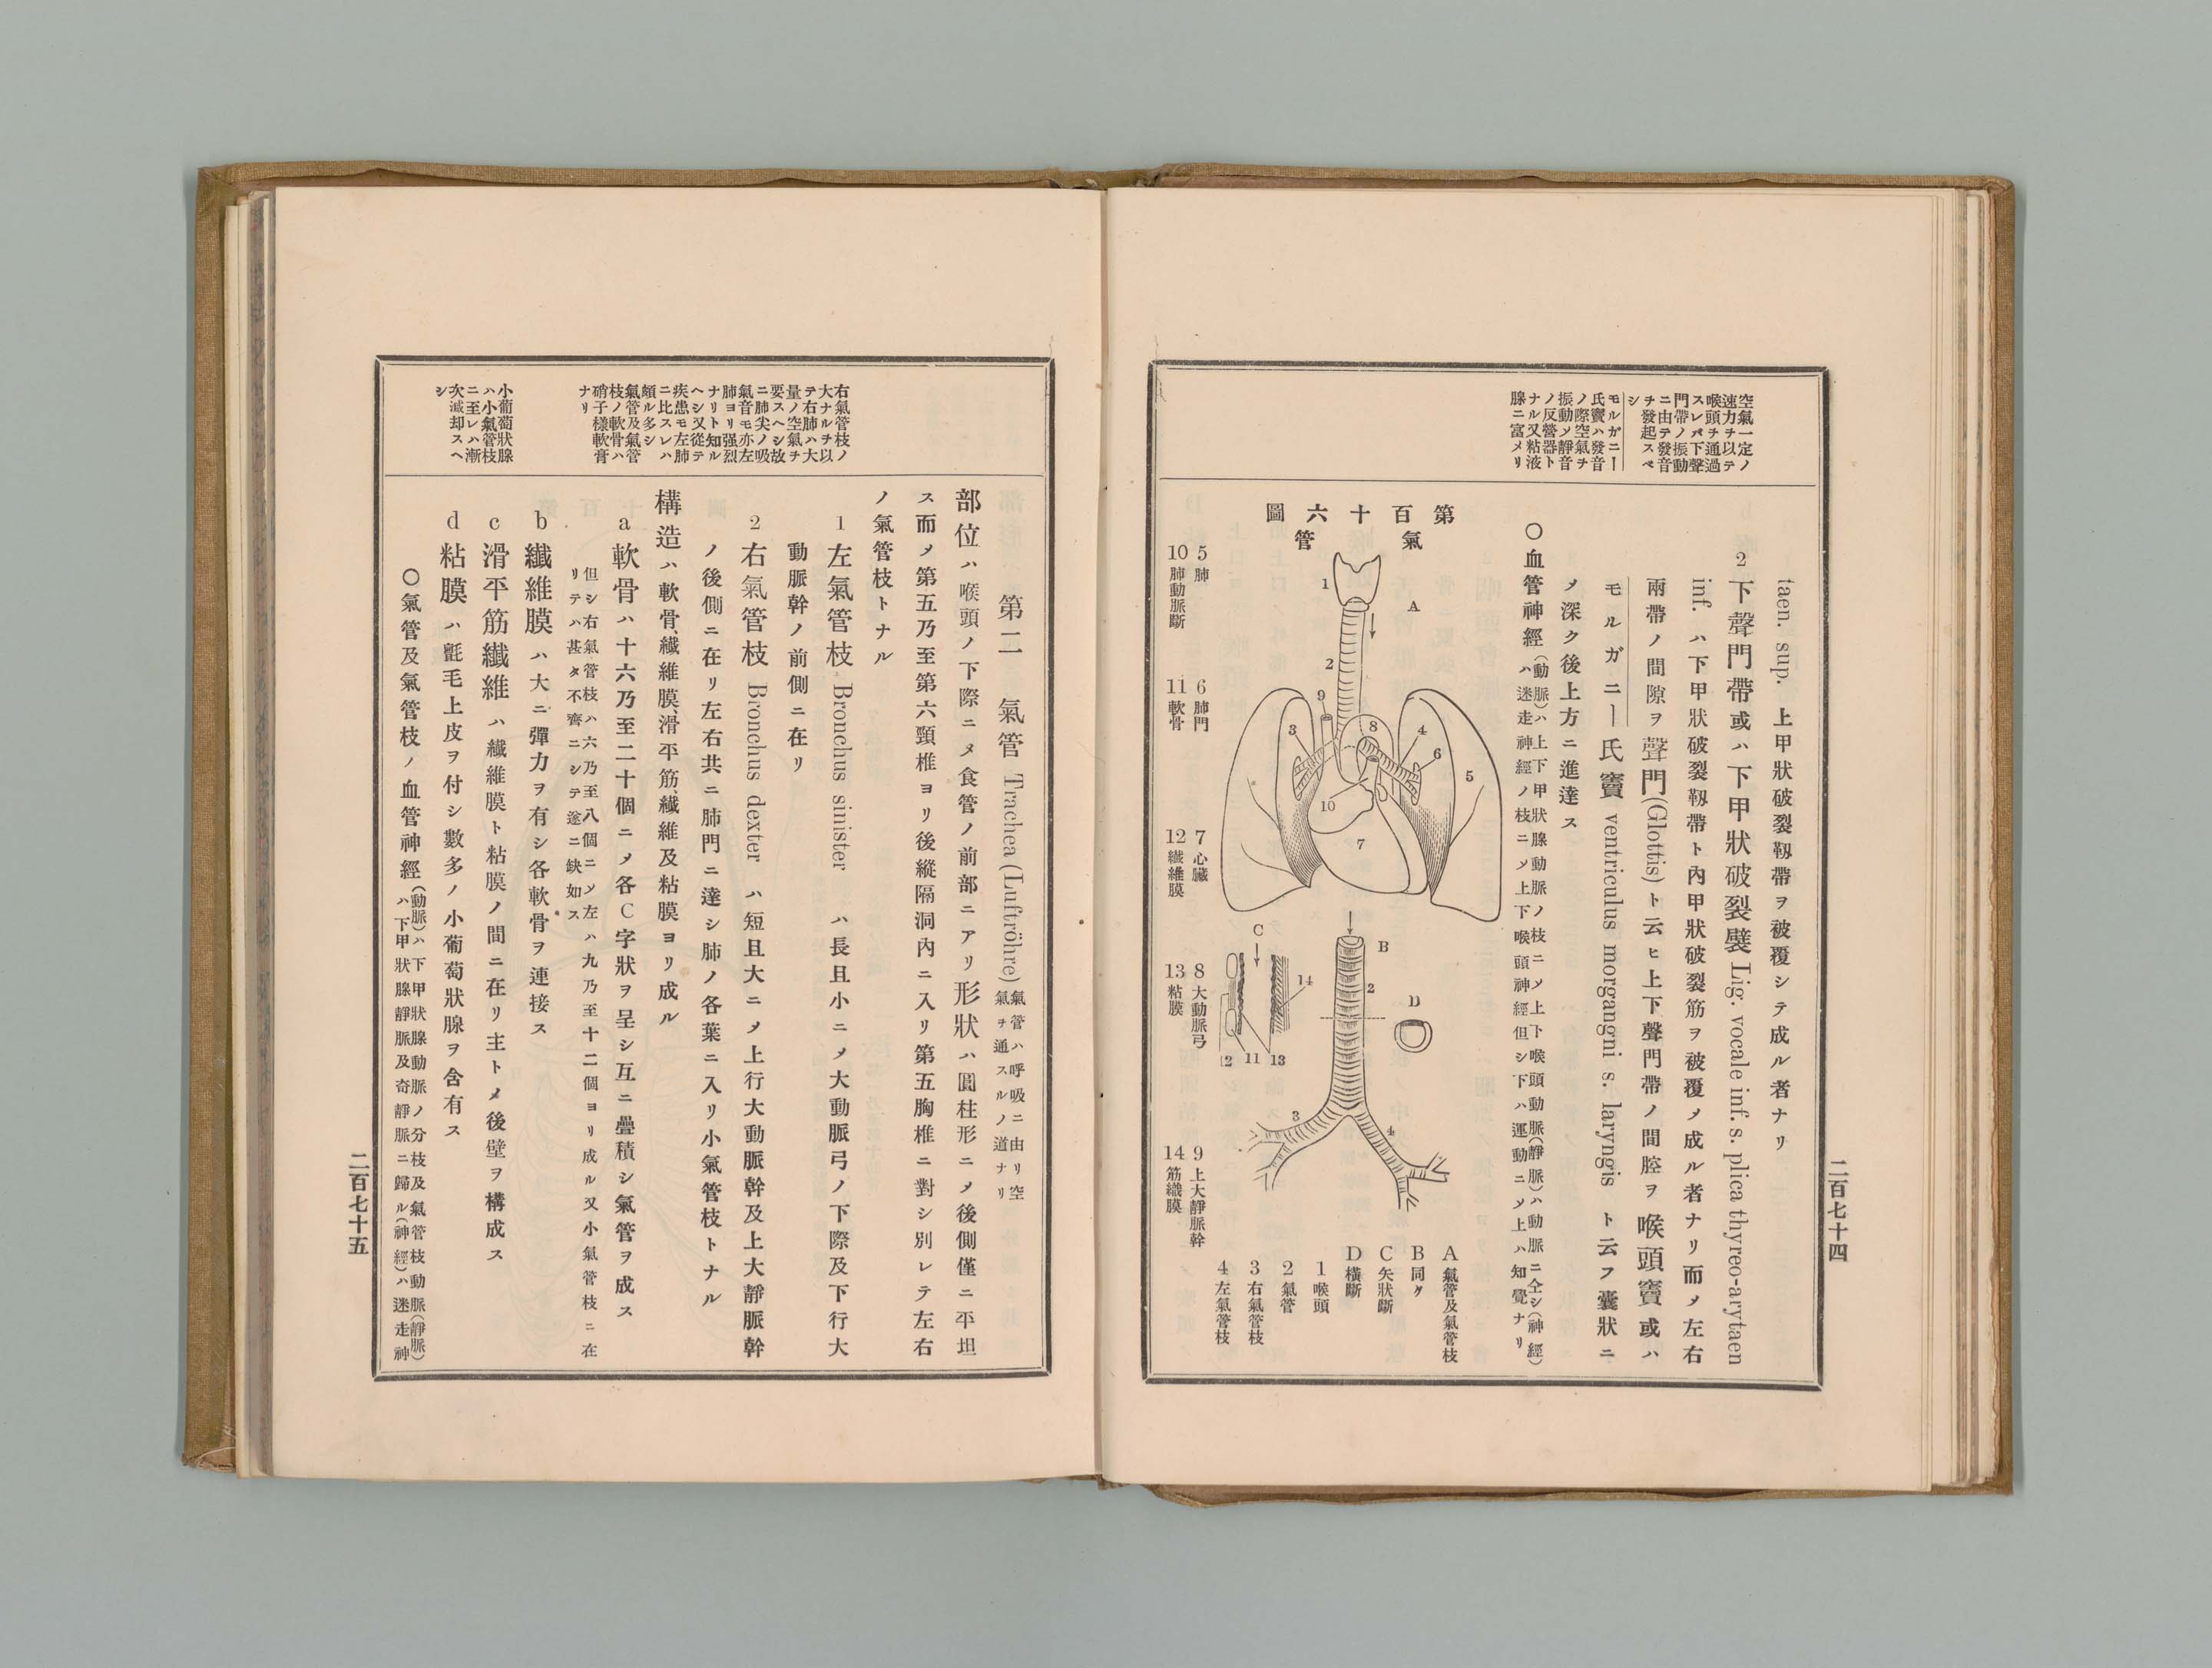 空氣一定ノ
速力チ以テ
喉頭チ通過
スレバ下聲
門帶ノ振動
ニ由テ發音
チ發起スベ
シ
モルガニー
氏竇ハ發音
ノ際空氣チ
振動ソ靜音
ノ反響器ト
ナル又粘液
腺ニ富メリ
taen. sup. 上甲狀破裂靱帶ヲ被覆シテ成ル者ナリ
2 下聲門帶或ハ下甲狀破裂襞 Lig. vocale inf. s. plica thyreo-arytaen
inf. ハ下甲狀破裂靱帶ト內甲狀破裂筋ヲ被覆メ成ル者ナリ而メ左右
兩帶ノ間隙ヲ聲門(Glottis)ト云ヒ上下聲門帶ノ間腔ヲ喉頭竇或ハ
モルガニー氏竇 ventriculus morgagni s. laryngis ト云フ囊狀ニ
メ深ク後上方ニ進達ス
○血管神經(動脈)ハ上下甲狀腺動脈ノ枝ニメ上下喉頭動脈(靜脈)ハ動脈ニ仝シ(神經)
ハ迷走神經ノ枝ニメ上下喉頭神經但シ下ハ運動ニメ上ハ知覺ナリ
第百十六圖
氣管
1
A
2
9
3
8
4
6
5
10
7
B
C
2
14
D
12
11
13
3
4
A 氣管及氣管枝
B 同ク
C 矢狀斷
D 橫斷
1 喉頭
2 氣管
3 右氣管枝
4 左氣管枝
5 肺
6 肺門
7 心臟
8 大動脈弓
9 上大靜脈幹
10 肺動脈斷
11 軟骨
12 纎維膜
13 粘膜
14 筋纎膜
二百七十四
右氣管枝ノ
大ナルチ以
テ右肺ハ大
量ノ空氣チ
要スヘシ故
ニ肺尖ノ吸
氣音モ亦左
肺ヨリ强烈
ナリト知ル
ヘシ又從テ
疾患モ左肺
ニ比スレハ
頗ル多シ
氣管及氣管
枝ノ軟骨ハ
硝子樣軟膏
ナリ
小葡萄狀腺
ハ小氣管枝
ニ至レハ漸
次減却スヘ
シ
第二 氣管 Trachea (Luftröhre) 氣管ハ呼吸ニ由リ空
氣チ通スルノ道ナリ
部位ハ喉頭ノ下際ニメ食管ノ前部ニアリ形狀ハ圓柱形ニメ後側僅ニ平坦
ス而メ第五乃至第六頸椎ヨリ後縱隔洞內ニ入リ第五胸椎ニ對シ別レテ左右
ノ氣管枝トナル
1 左氣管枝 Bronchus sinister ハ長且小ニメ大動脈弓ノ下際及下行大
動脈幹ノ前側ニ在リ
2 右氣管枝 Bronchus dexter ハ短且大ニメ上行大動脈幹及上大靜脈幹
ノ後側ニ在リ左右共ニ肺門ニ達シ肺ノ各葉ニ入リ小氣管枝トナル
構造ハ軟骨、纎維膜、滑平筋纎維及粘膜ヨリ成ル
a 軟骨ハ十六乃至二十個ニメ各C字狀ヲ呈シ互ニ疊積シ氣管ヲ成ス
但シ右氣管枝ハ六乃至八個ニメ左ハ九乃至十二個ヨリ成ル又小氣管枝ニ在
リテハ甚タ不齊ニシテ遂ニ缺如ス
b 纎維膜ハ大ニ彈力ヲ有シ各軟骨ヲ連接ス
c 滑平筋纎維ハ纎維膜ト粘膜ノ間ニ在リ主トメ後壁ヲ構成ス
d 粘膜ハ氈毛上皮ヲ付シ數多ノ小葡萄狀腺ヲ含有ス
○氣管及氣管枝ノ血管神經(動脈)ハ下甲狀腺動脈ノ分枝及氣管枝動脈(靜脈)
ハ下甲狀腺靜脈及奇靜脈ニ歸ル(神經)ハ迷走神
二百七十五